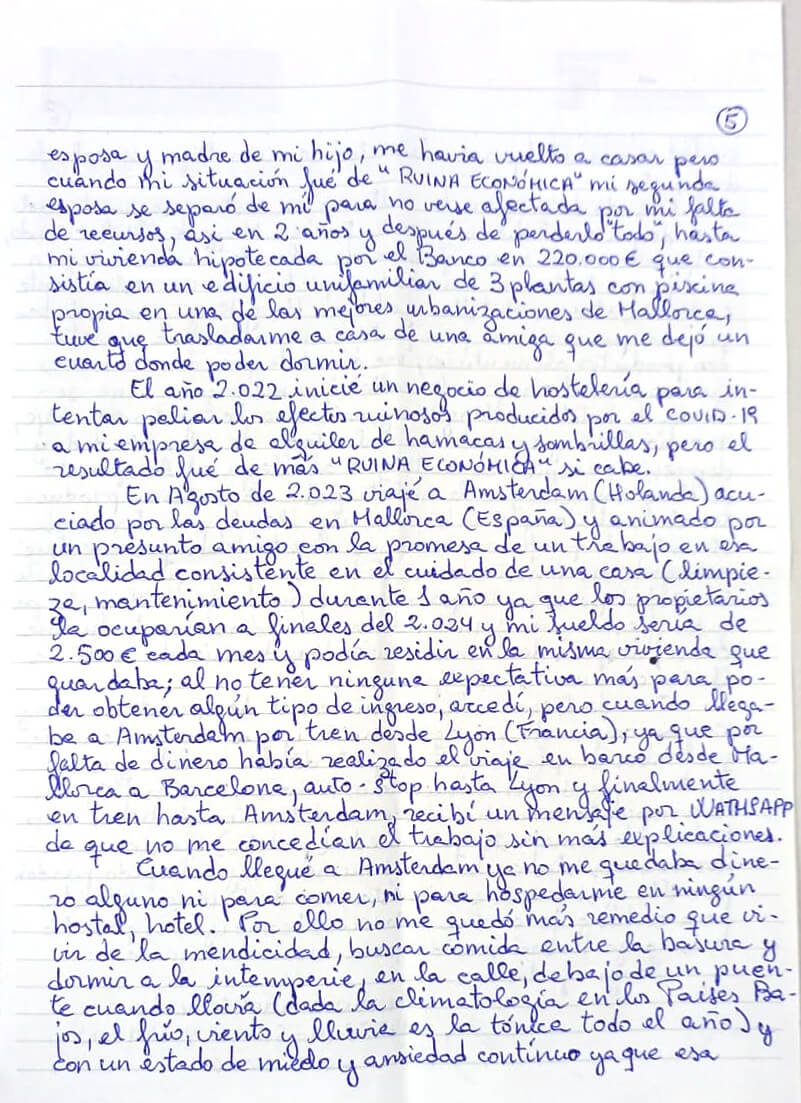 5
esposa y madre de mi hijo, me havia vuelto a casar pero
cuándo mi situación fué de "RUINA ECONÓMICA" mi segunda
esposa se separó de mi para no verse afectada por mi falta
de recursos, asi en 2 años y después de perderlo "todo", hasta
mi vivienda hipotecada por el Banco en 220.000 € que con-
sistía en un edificio unifamiliar de 3 plantas con piscina
propia en una de las mejores urbanizaciones de Mallorca,
tuve que trasladarme a casa de una amiga que me dejó un
cuarto donde poder dormir.
El año 2.022 inicié un negocio de hostelería para in-
tentar paliar los efectos ruinosos producidos por el COVID-19
a mi empresa de alquiler de hamacas y sombrillas, pero el
resultado fué de más "RUINA ECONÓMICA" si cabe.
En Agosto de 2.023 viajé a Amsterdam (Holanda) acu-
ciado por las deudas en Mallorca (España) y animado por
un presunto amigo con la promesa de un trabajo en esa
localidad consistente en el cuidado de una casa (limpie-
za, mantenimiento) durante 1 año ya que los propietarios
la ocuparían a finales del 2.024 y mi sueldo sería de
2.500 € cada mes y podía residir en la misma vivienda que
guardaba; al no tener ninguna expectativa más para po-
der obtener algún tipo de ingreso, accedí, pero cuando llega-
ba a Amsterdam por tren desde Lyón (Francia), ya que por
falta de dinero había realizado el viaje en barco desde Ma-
llorca a Barcelona, auto-stop hasta Lyon y finalmente
en tren hasta Amsterdam, recibí un mensaje por WATHSAPP
de que no me concedían el trabajo sin más explicaciones.
Cuando llegué a Amsterdam ya no me quedaba dine-
ro alguno ni para comer, ni para hospedarme en ningún
hostal, hotel. Por ello no me quedó más remedio que vi-
vir de la mendicidad, buscar comida entre la basura y
dormir a la intemperie, en la calle, debajo de un puen-
te cuando llovía (dada la climatología en los Paises Ba-
jos, el frío, viento y lluvia es la tónica todo el año) y
con un estado de miedo y ansiedad contínuo ya que esa